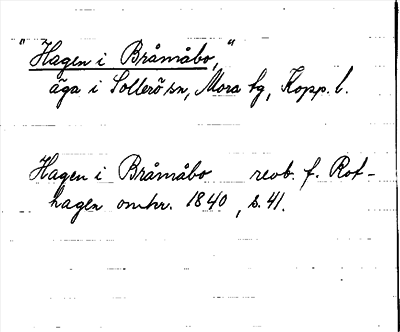 "Hagen i Bråmåbo,"
äga i Sollerö sn, Mora tg, Kopp. l.
Hagen i Bråmåbo reob. f. Rot-
hagen omkr. 1840, s. 41.